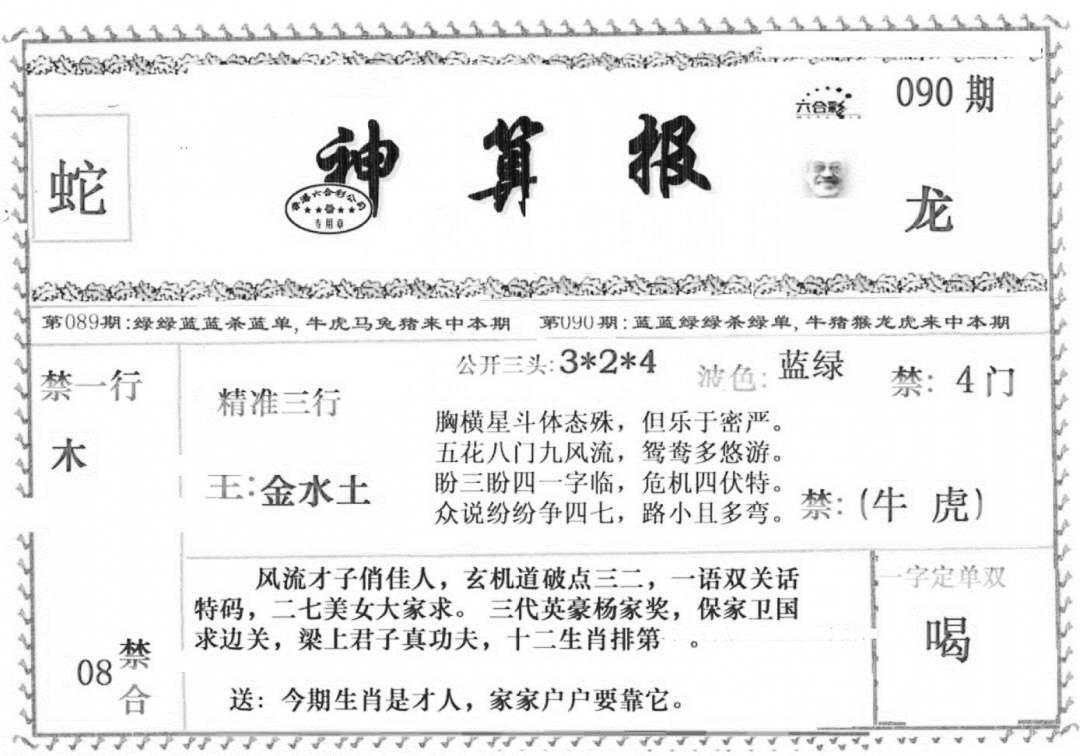 六合彩
090 期
蛇
神算报
香港六合彩公司
专用章
龙
第089期:绿绿蓝蓝杀蓝单,牛虎马兔猪来中本期 第090期:蓝蓝绿绿杀绿单,牛猪猴龙虎来中本期
禁一行
木
精准三行
王:金水土
公开三头:3*2*4
波色:蓝绿
禁:4门
胸横星斗体态殊，但乐于密严。
五花八门九风流，鸳鸯多悠游。
盼三盼四一字临，危机四伏特。
众说纷纷争四七，路小且多弯。
禁:(牛 虎)
08禁合
风流才子俏佳人，玄机道破点三二，一语双关话
特码，二七美女大家求。 三代英豪杨家奖，保家卫国
求边关，梁上君子真功夫，十二生肖排第 。
送：今期生肖是才人，家家户户要靠它。
一字定单双
喝